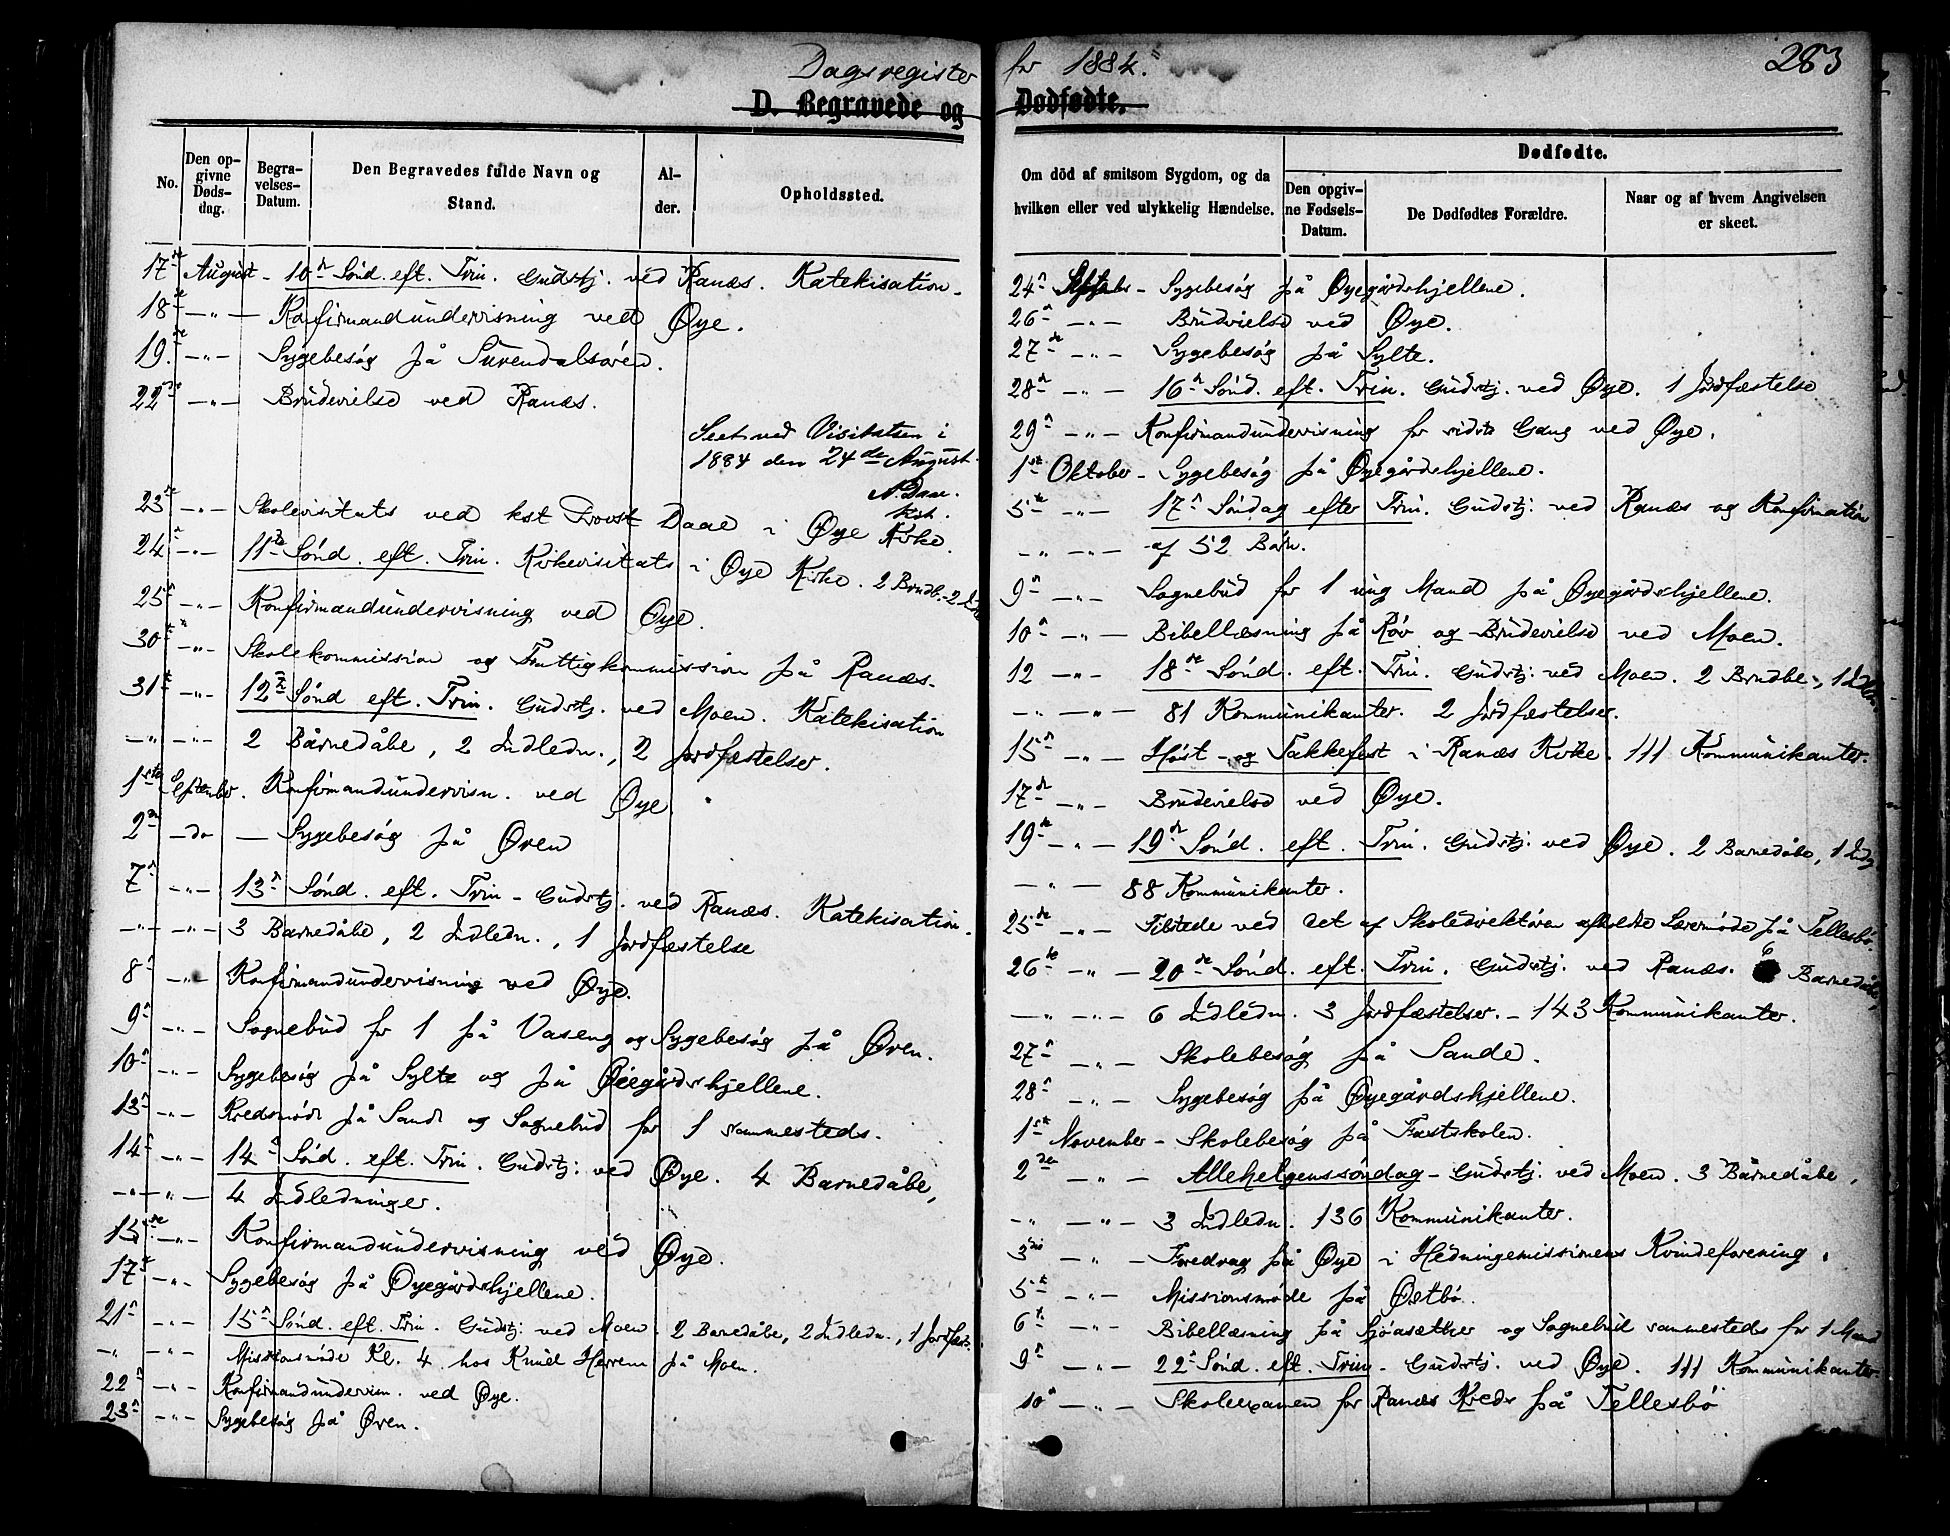 Dagsregister for 1884.
283
D. Begravede og Dødfødte.
No.
Den opgivne Dødsdag.
Begravelses-Datum.
Den Begravedes fulde Navn og Stand.
Alder.
Opholdssted.
Om död af smitsom Sygdom, og da hvilken eller ved ulykkelig Hændelse.
Dødfødte.
Den opgivne Fødsels-Datum.
De Dødfødtes Forældre.
Naar og af hvem Angivelsen er skeet.
17de August - 10de Sønd. eft. Trin. Gudstj. ved Ranæs. Katekisation.
18de -"- Konfirmandundervisning ved Øye.
19de -"- Sygebesøg på Surendalsøren.
22de -"- Brudevielse ved Ranæs.
Seet ved Visitatsen i
1884 den 24de August.
N. Daae.
kst.
23de -"- Skolevisitats ved kst Provst Daae i Øye Kirke.
24de -"- 11te Sønd. eft. Trin. Kirkevisitats i Øye Kirke. 2 Brndb. - 2 Indl.
25de -"- Konfirmandundervisning ved Øye.
30te -"- Skolekommission og Fattigkommission på Ranæs.
31te -"- 12te Sønd eft. Trin. Gudstj. ved Moen. Katekisation
-"- -"- 2 Barnedåbe, 2 Indledn., 2 Jordfæstelser.
1ste September. Konfirmandundervisn. ved Øye.
2den -do - Sygebesøg på Øren
7de -"- 13de Sønd. eft. Trin - Gudstj. ved Ranæs. Katekisation.
-"- -"- 3 Barnedåbe, 2 Indledn., 1 Jordfæstelse
8de -"- Konfirmandundervisning ved Øye.
9de -"- Sognebud for 1 på Vaseng og Sygebesøg på Øren.
10de -"- Sygebesøg på Sylte og på Øiegårdshjellene.
13de -"- Kredsmøde på Sande og Sognebud for 1 sammesteds.
14de -"- 14de Sønd. eft. Trin. Gudstj. ved Øye. 4 Barnedåbe,
-"- -"- 4 Indledninger.
15de -"- Konfirmandundervisning ved Øye.
17de -"- Sygebesøg på Øyegårdshjellene.
21de -"- 15de Sønd. eft. Trin. Gudstj. ved Moen. 2 Barnedåbe, 2 Indledn., 1 Jordfæst.
-"- -"- Missionsmøde Kl. 4 hos Knud Herrem på Moen.
22de -"- Konfirmandundervisn. ved Øye.
23de -"- Sygebesøg på Øren.
24de Septbr - Sygebesøg på Øyegårdshjellene.
26de -"- Brudvielse ved Øye.
27de -"- Sygebesøg på Sylte.
28de -"- 16de Sønd. eft. Trin. Gudstj. ved Øye. 1 Jordfæstelse
29de -"- Konfirmandundervisning for sidste Gang ved Øye.
1ste Oktober - Sygebesøg på Øyegårdshjellene.
5te -"- 17de Søndag efter Trin. Gudstj. ved Ranæs og Konfirmation
-"- -"- af 52 Børn.
9de -"- Sognebud for 1 ung Mand på Øyegårdshjellene.
10de -"- Bibellæsning på Røv og Brudevielse ved Moen.
12 -"- 18de Sønd. eft. Trin. Gudstj. ved Moen. 2 Brndbe-, 1 Indledn.
-"- -"- 81 Kommunikanter. 2 Jordfæstelser.
15de -"- Høst- og Takkefest i Ranæs Kirke. 111 Kommunikanter.
17de -"- Brudevielse ved Øye.
19de -"- 19de Sønd. eft. Trin. Gudstj. ved Øye. 2 Barnedåbe, 1 Indl.
-"- 88 Kommunikanter.
25de -"- Tilstede ved det af Skoledirektøren afholdte Lærermøde på Tellesbø.
26de -"- 20de Sønd. eft. Trin. Gudstj. ved Ranæs. 6 Barnedåbe,
-"- -"- 6 Indledn. 3 Jordfæstelser. - 143 Kommunikanter.
27de -"- Skolebesøg på Sande.
28de -"- Sygebesøg på Øyegårdshjellene.
1ste November - Skolebesøg på Fastskolen.
2den -"- Allehelgenssøndag - Gudstj. ved Moen. 3 Barnedåbe,
-"- -"- 3 Indledn. 136 Kommunikanter.
3die -"- Foredrag på Øye i Hedningemissionens Kvindeforening.
5te -"- Missionsmøde på Østbø.
6te -"- Bibellæsning på Sjøasæther og Sognebud sammesteds for 1 Mand
9de -"- 22de Sønd. eft. Trin. Gudstj. ved Øye. 111 Kommunikanter.
10de -"- Skoleexamen for Ranæs Kreds på Tellesbø